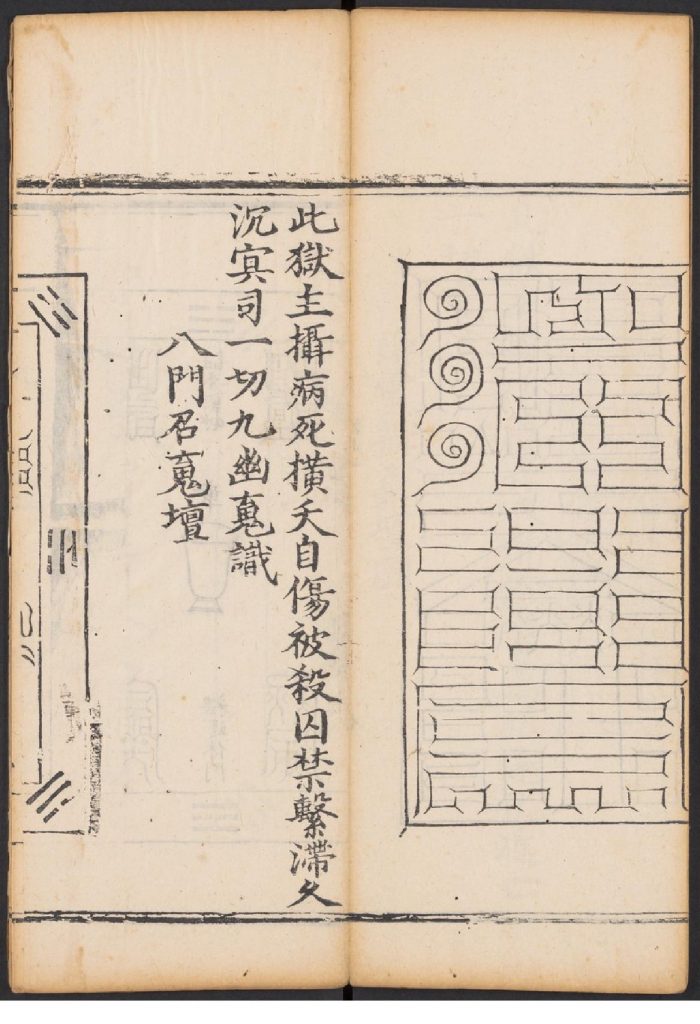 此獄主攝病死橫夭自傷被殺囚禁繫滯久
沉㝠司一切九幽䰟識
八門召䰟壇